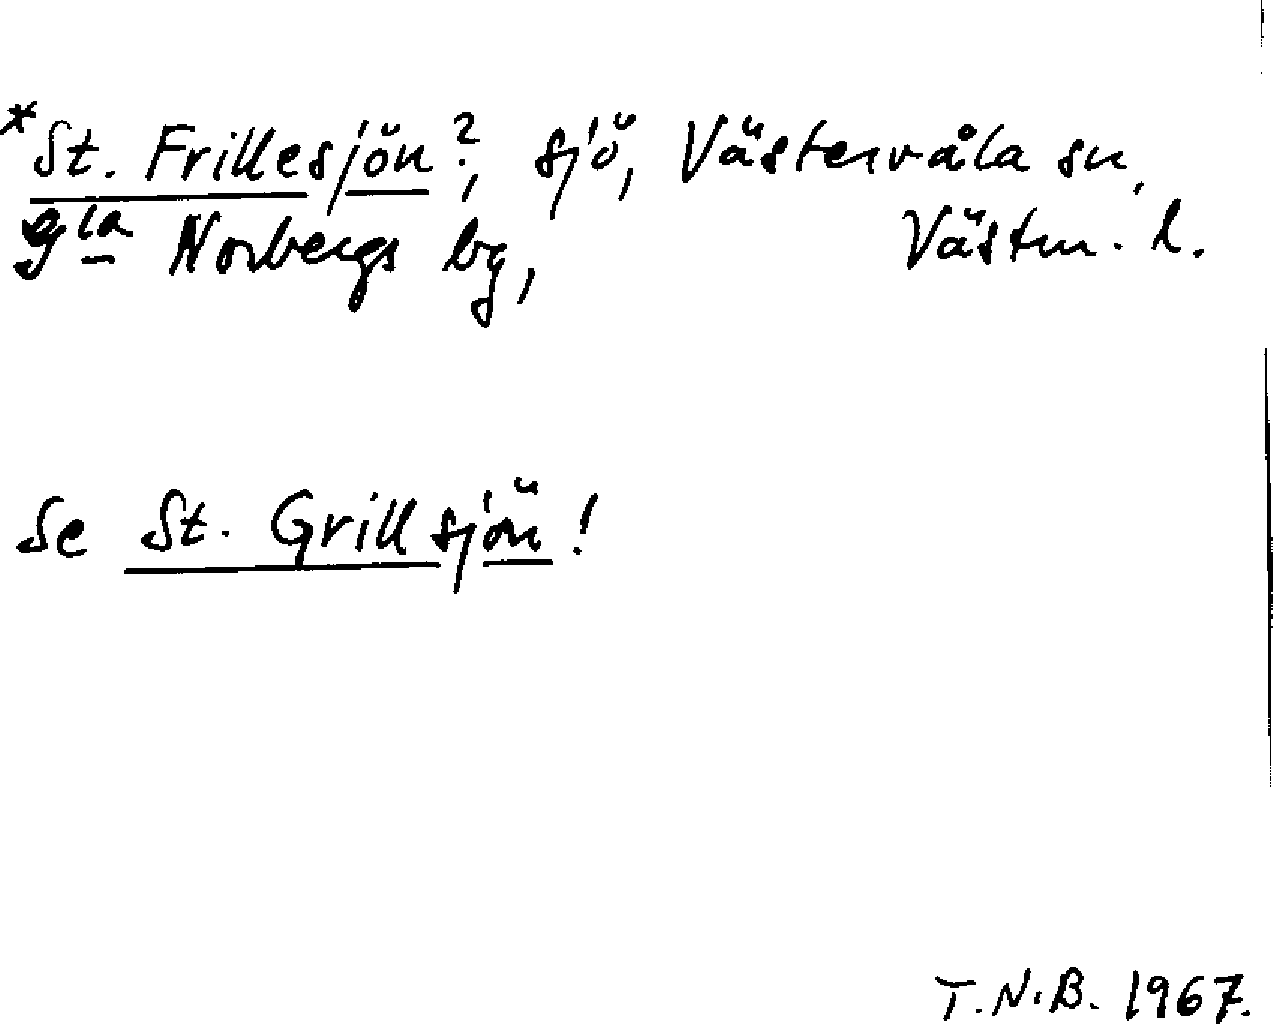 *St. Frillesjön?, sjö, Västervåla sn,
gla Norbergs bg, Västm. l.
Se St. Grillsjön!
T.N.B. 1967.